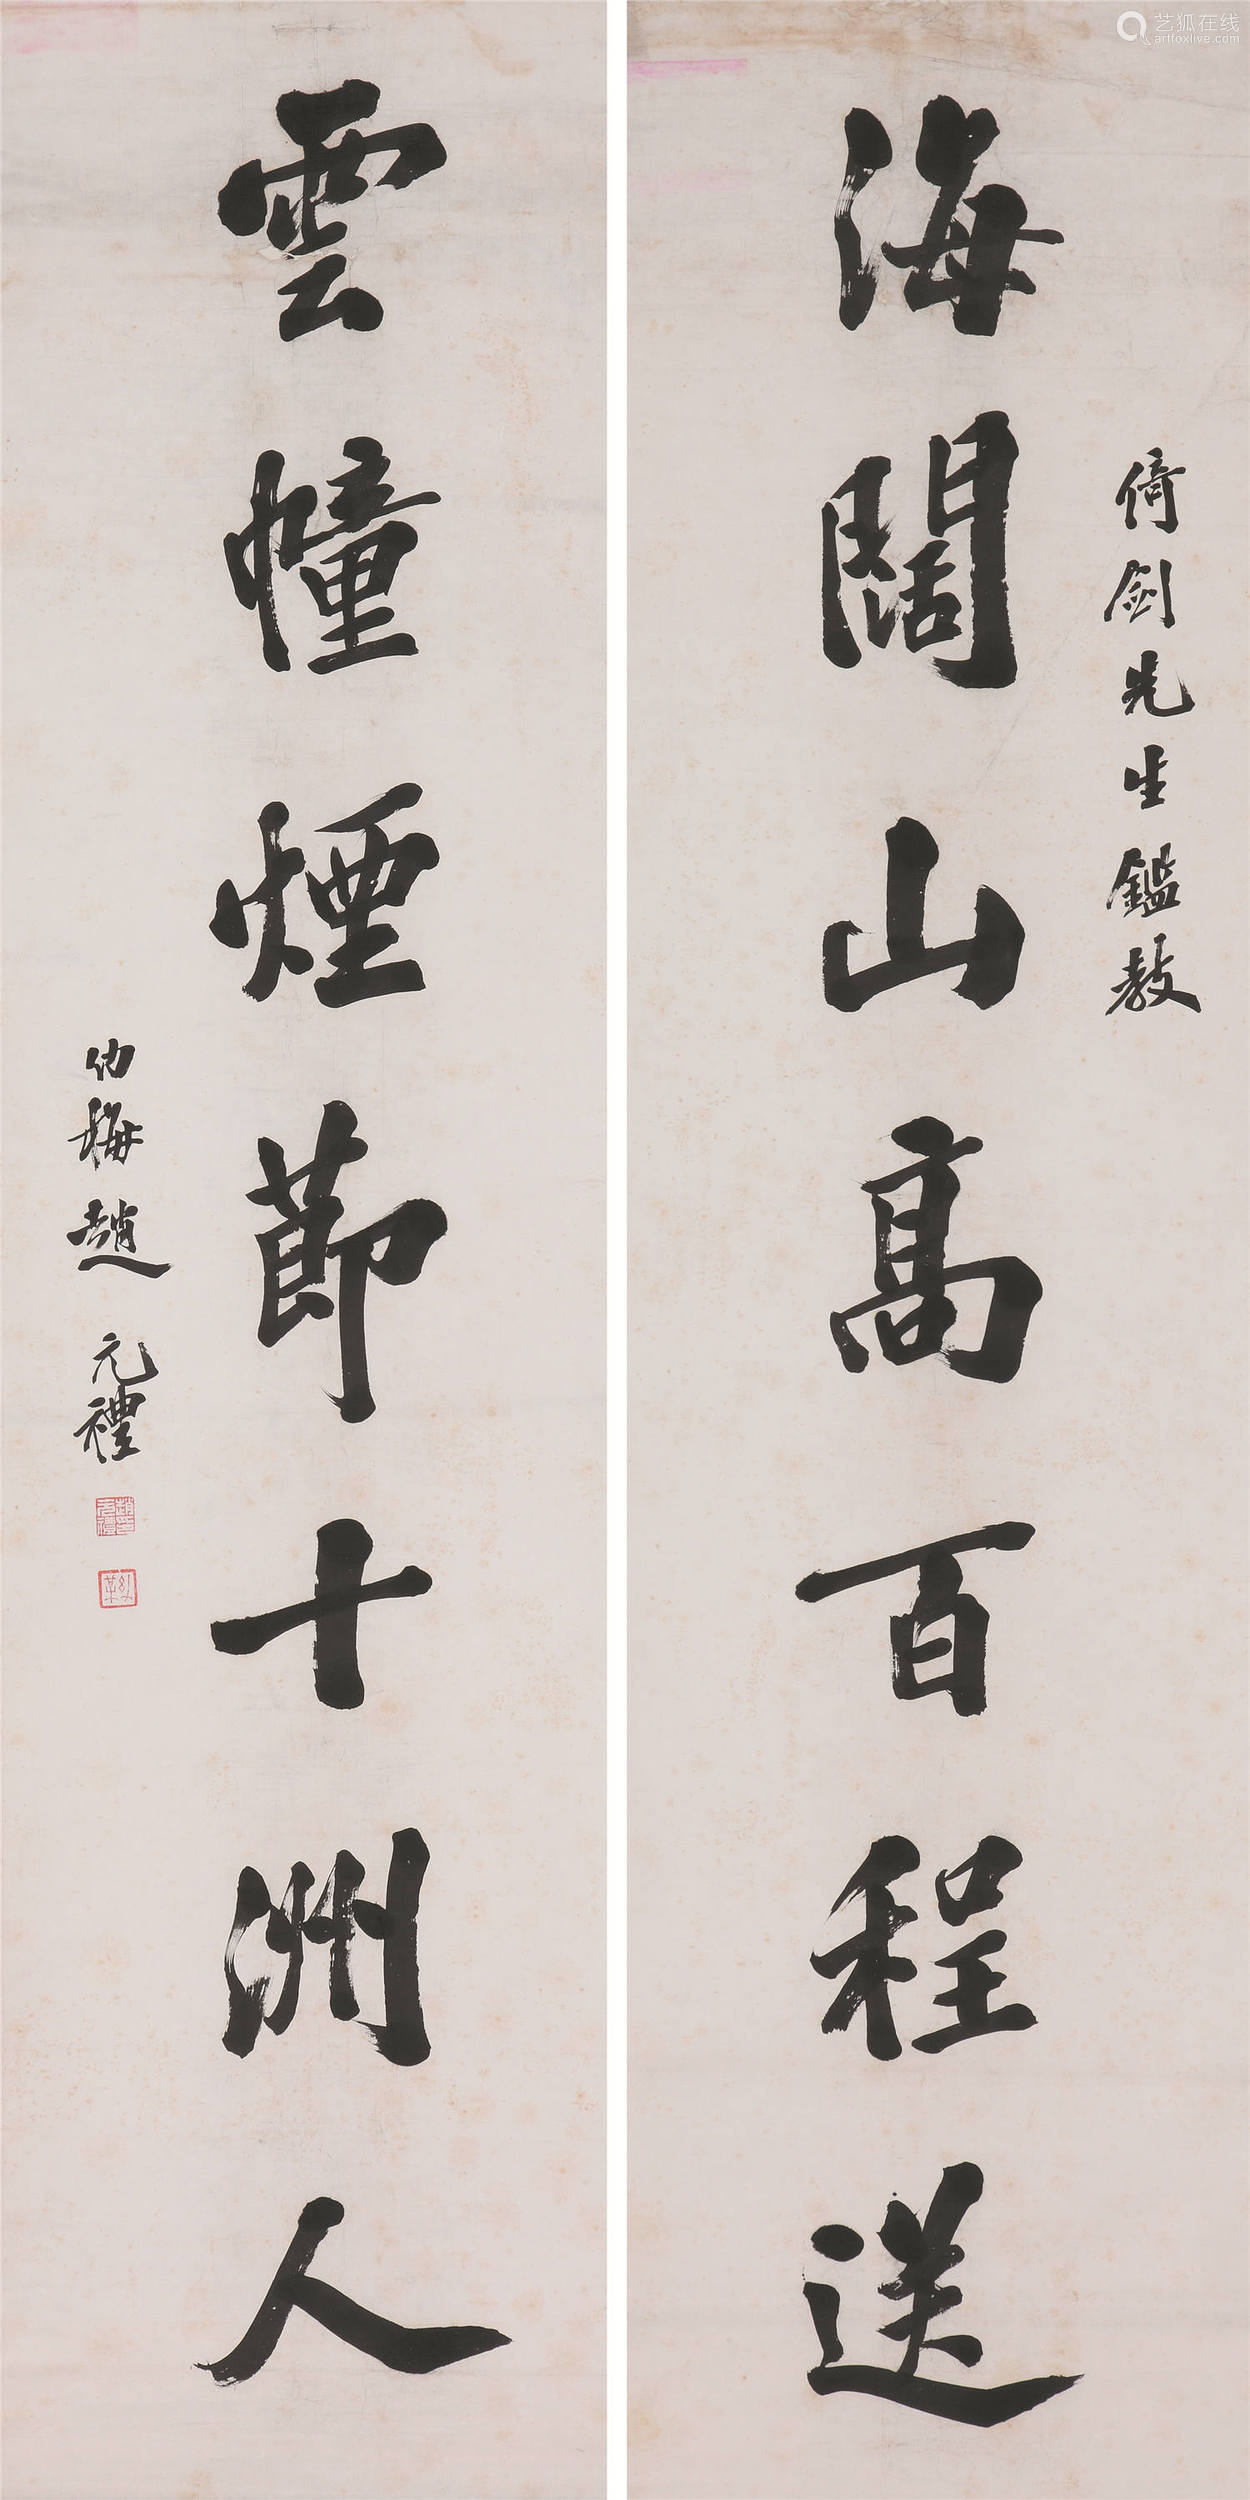 倚劍先生鑑教
海闊山高百程送
雲幢煙節十洲人
幼梅趙元禮
趙元禮印
幼某
艺狐在线
artfoxlive.com